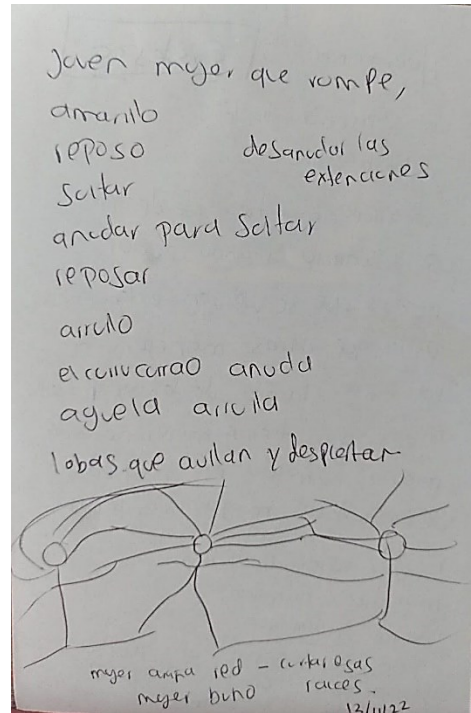 Joven mujer que rompe,
amarillo
reposo desanudar las
extenciones
Saltar
anudar para Saltar
reposar
arrullo
anuda
aguela arrulla
lobas que aullan y despiertan
mujer red –
mujer buho raices.
12/11/22